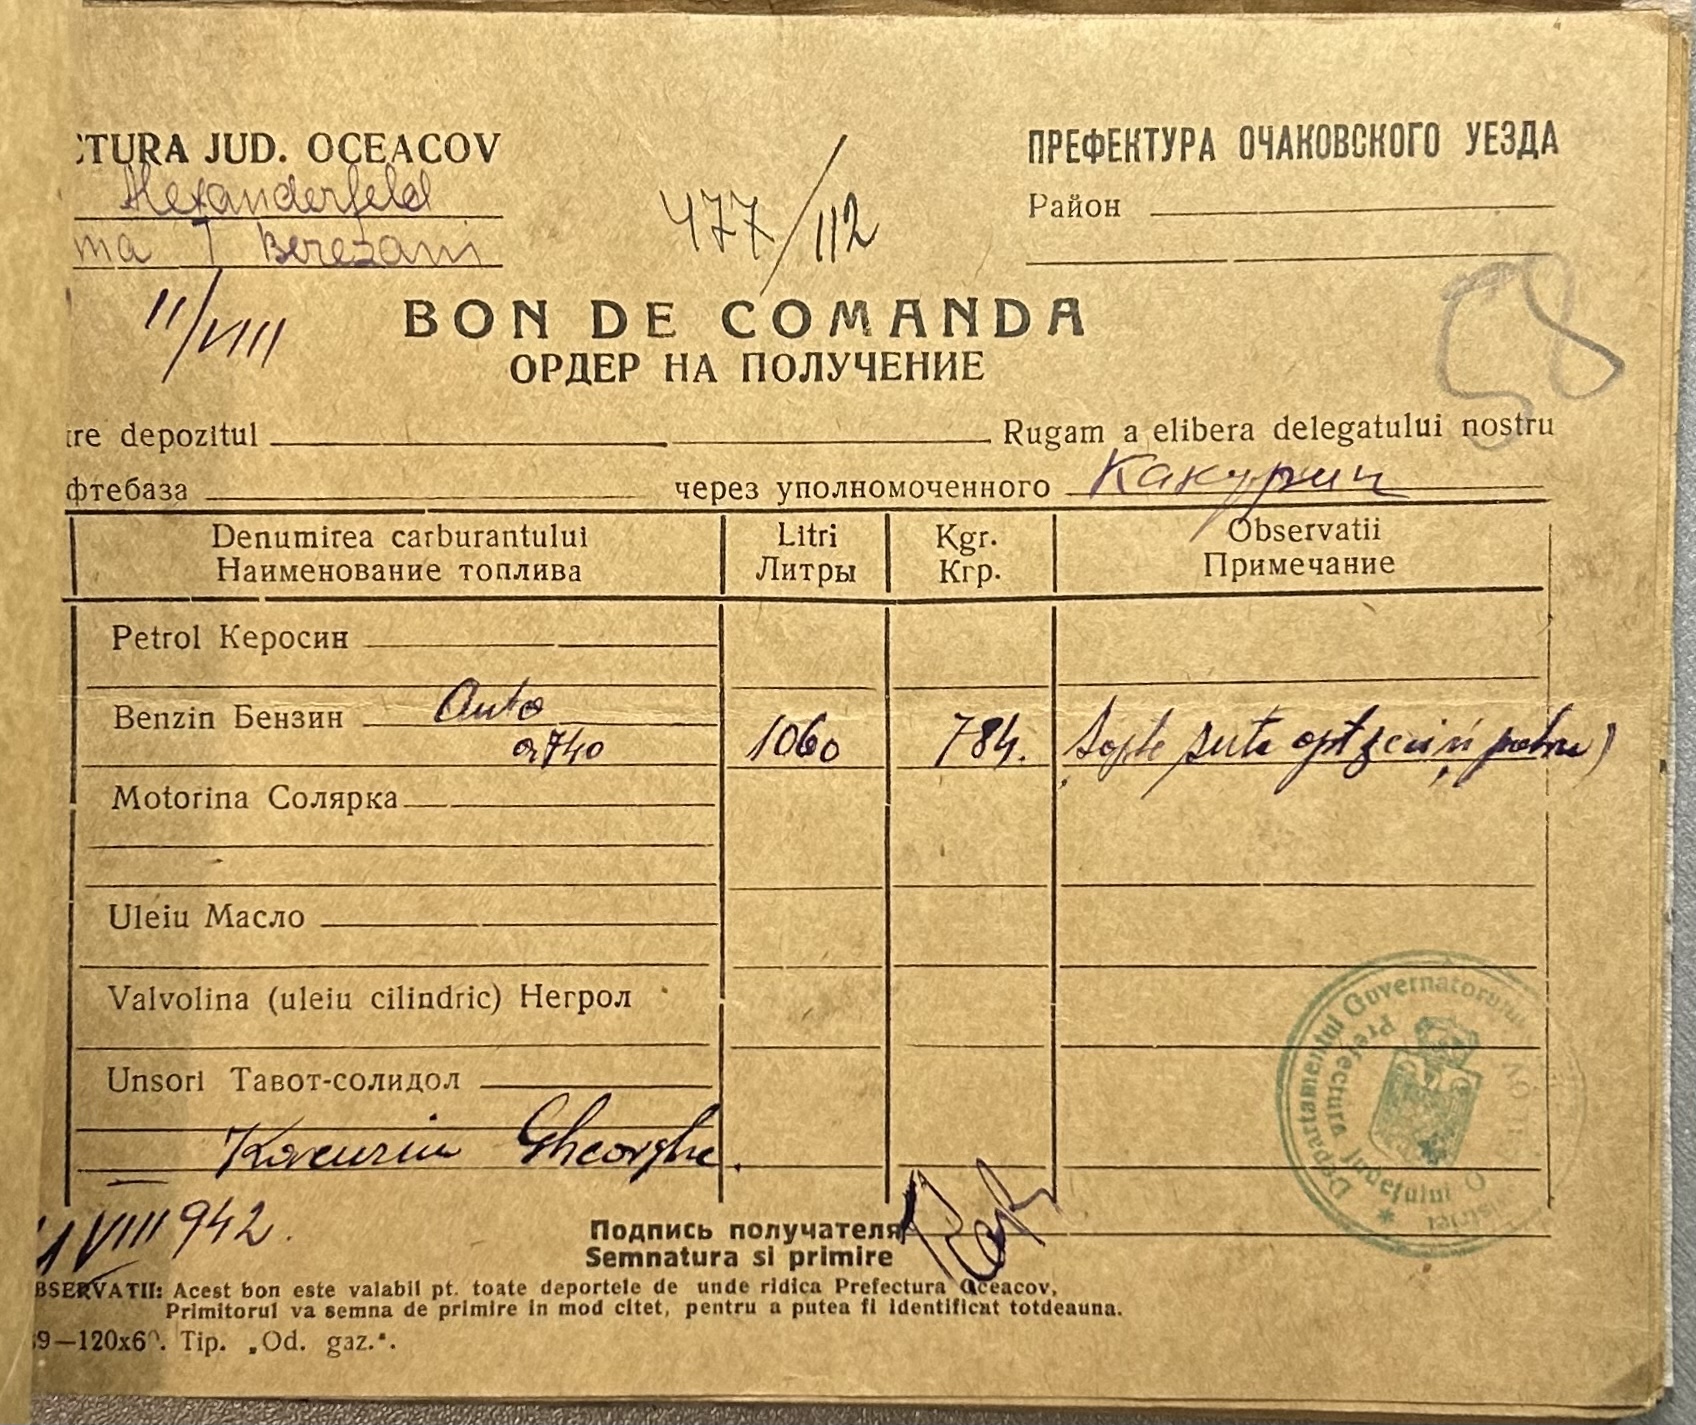 CTURA JUD. OCEACOV
ПРЕФЕКТУРА ОЧАКОВСКОГО УЕЗДА
Alexanderfeld
477/112
Район
ma I Berezani
11/VIII
58
BON DE COMANDA
ОРДЕР НА ПОЛУЧЕНИЕ
tre depozitul Rugam a elibera delegatului nostru
фтебаза через уполномоченного Какурин
Denumirea carburantului Litri Kgr. Observatii
Наименование топлива Литры Кгр. Примечание
Petrol Керосин
Benzin Бензин Auto
0740 1060 784. Șapte sute optzeci și patru)
Motorina Солярка
Uleiu Масло
Valvolina (uleiu cilindric) Негрол
Unsori Тавот-солидол
Kacurin Gheorghe.
Departamentul Guvernatorului
Prefectura Județului O
11 VIII 942.
Подпись получателя
Semnatura si primire
BSERVATII: Acest bon este valabil pt. toate deportele de unde ridica Prefectura Oceacov,
Primitorul va semna de primire in mod citet, pentru a putea fi identificat totdeauna.
39—120x60. Tip. „Od. gaz.“.